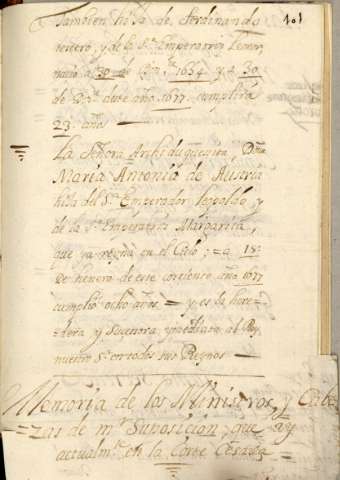 101
Tambien hija de Ferdinando
tercero, y de la S.ª Emperatriz Leonor,
nacio a 30 de 1654 y a 30
de este año 1677 cumplira
23 años
La Señora Archiduquesita, Dña
Maria Antonia de Austria
hija del S.r Emperador Leopoldo y
de la S.ª Emperatriz Margarita,
que ya reyna en el Cielo; = a 18
de henero de este corriente año 1677
cumplio ocho años = y es la here=
dera y Sucesora ynmediata al Rey
nuestro S.r en todos sus Reynos
Memoria de los Ministros, y Cabe
= zas de m.r Suposicion, que ay
actualm.te en la Corte Cesarea